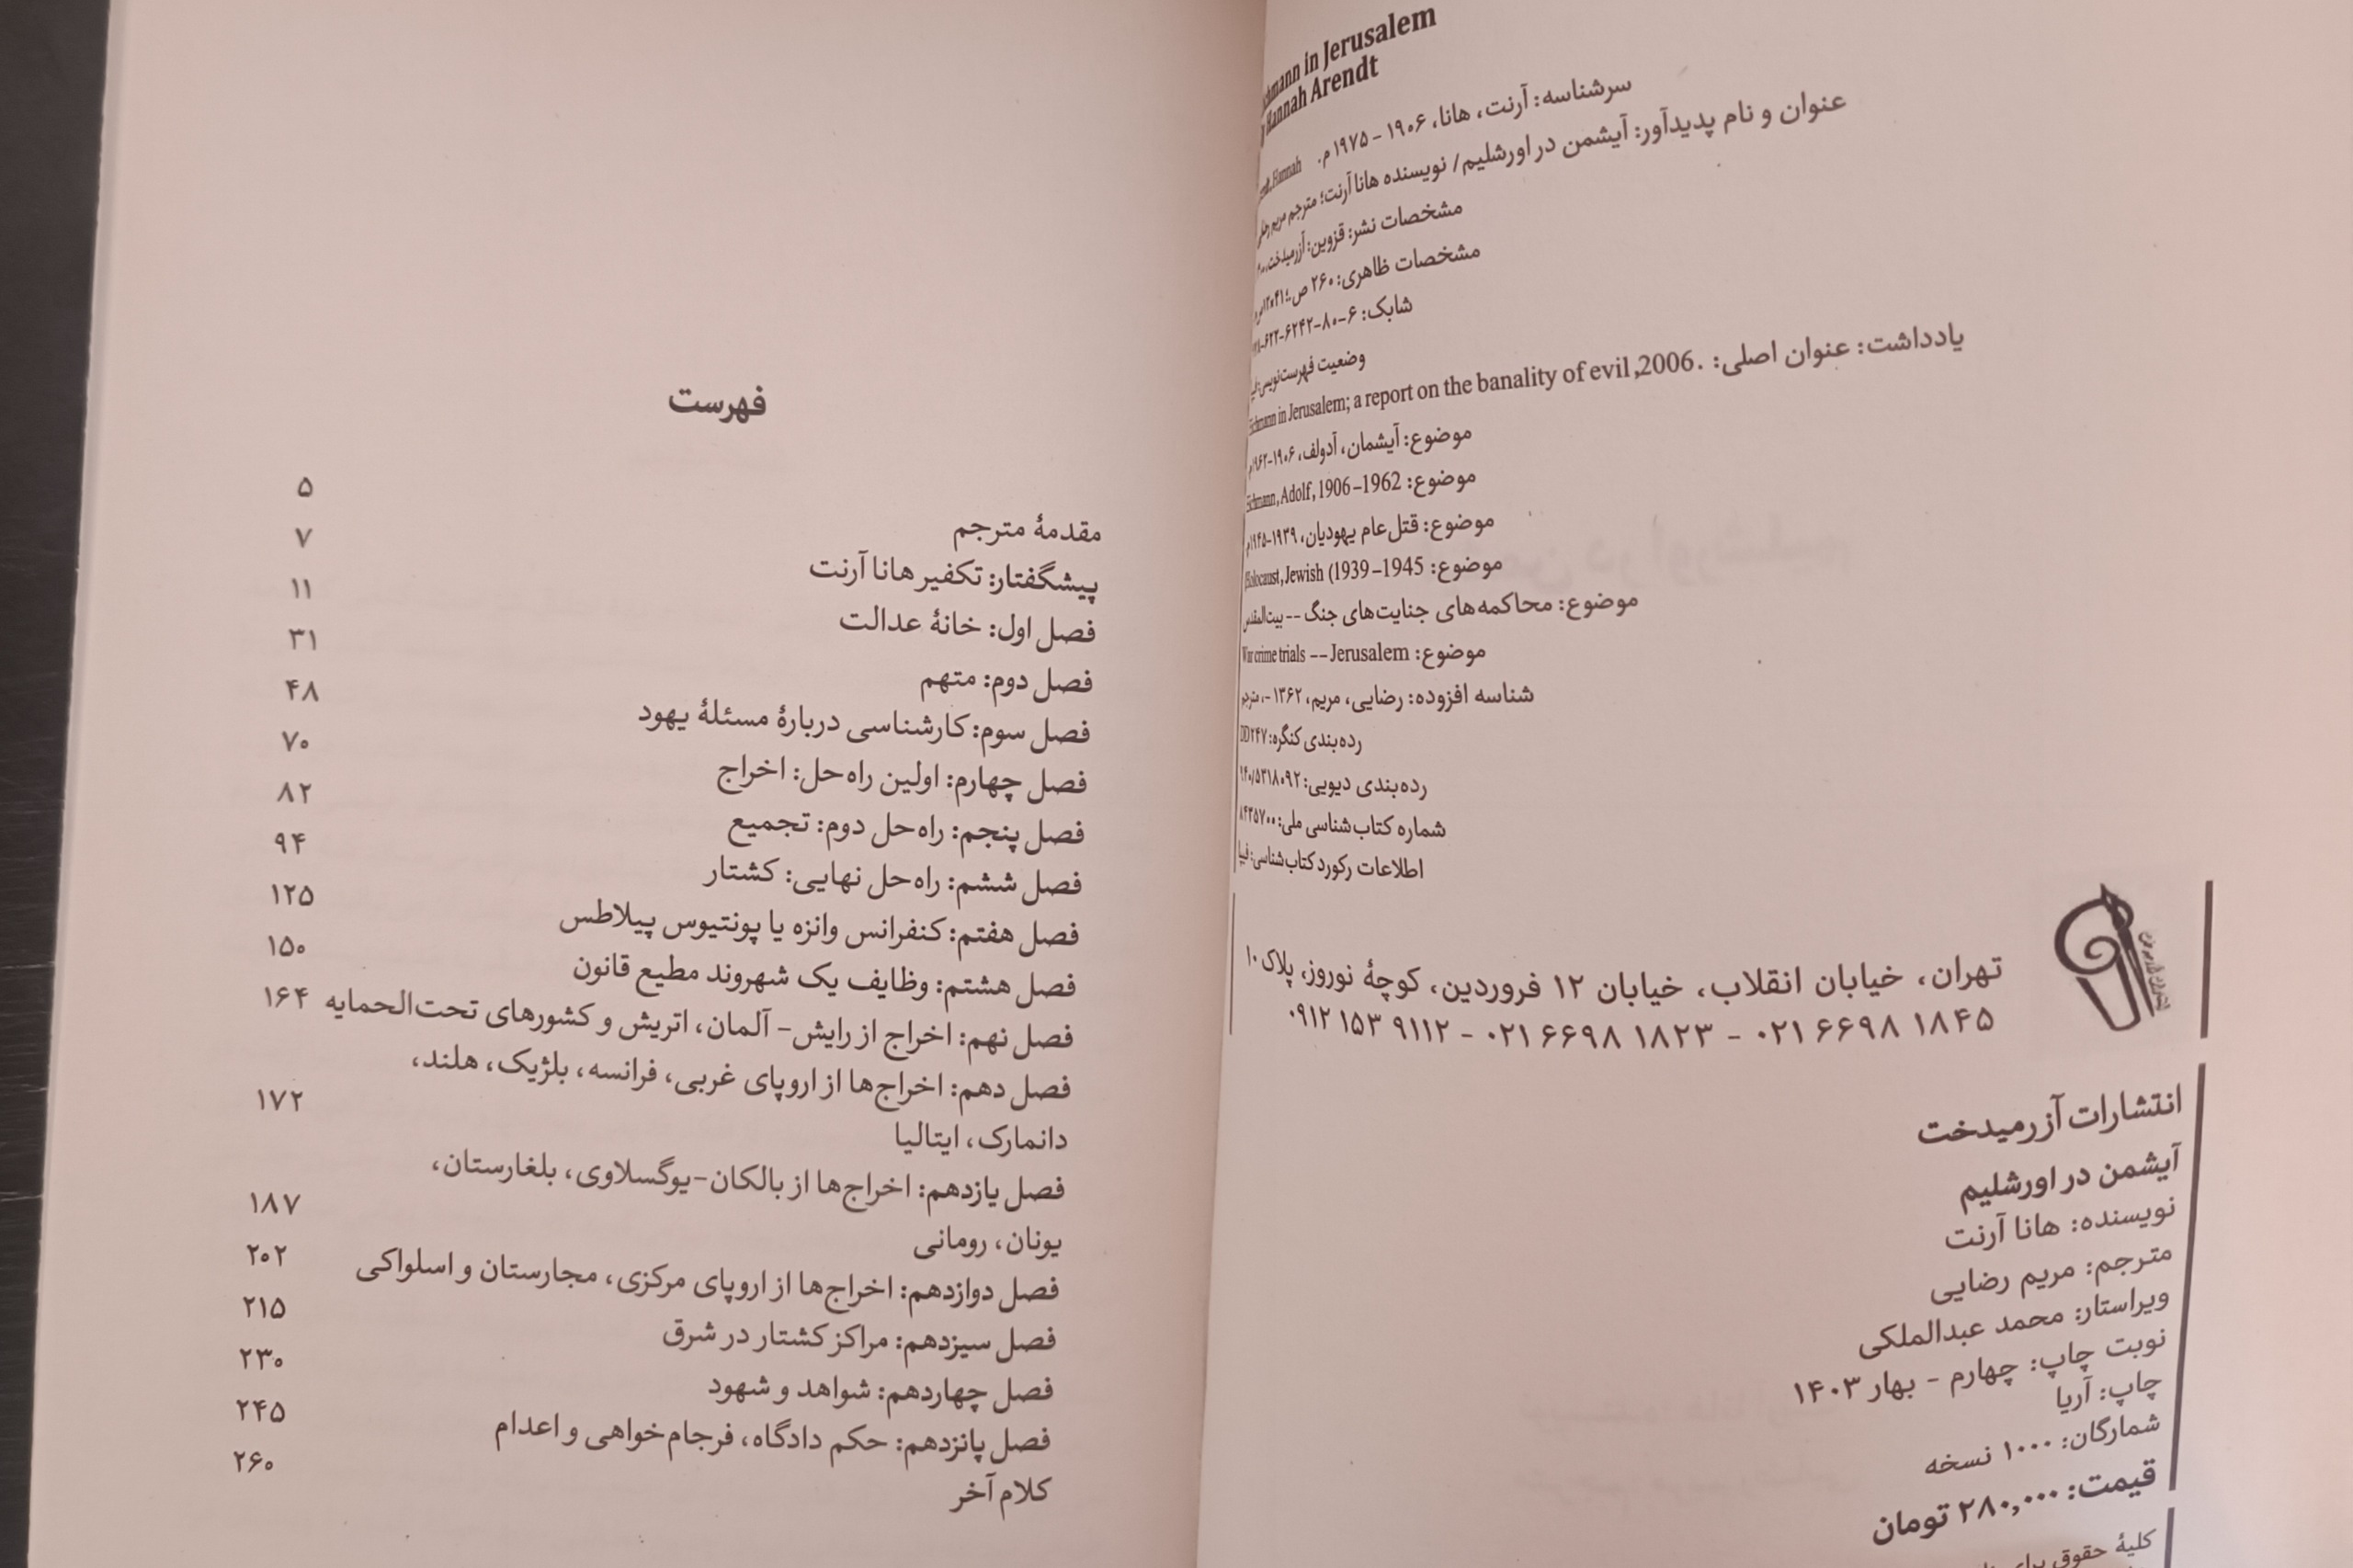 Eichmann in Jerusalem
Hannah Arendt
سرشناسه: آرنت، هانا، ۱۹۰۶ - ۱۹۷۵ م. Hannah
عنوان و نام پدیدآور: آیشمن در اورشلیم/ نویسنده هانا آرنت؛ مترجم مریم رضایی
مشخصات نشر: قزوین: آزرمیدخت،
مشخصات ظاهری: ۲۶۰ ص.؛
شابک: ۶-۸۰-۶۲۴۲-۶۲۲-
وضعیت فهرست‌نویسی: فیپا
یادداشت: عنوان اصلی: Eichmann in Jerusalem; a report on the banality of evil ,2006.
موضوع: آیشمان، آدولف، ۱۹۰۶-۱۹۶۲م
موضوع: Eichmann, Adolf, 1906-1962
موضوع: قتل‌عام یهودیان، ۱۹۳۹-۱۹۴۵م
موضوع: Holocaust, Jewish (1939-1945
موضوع: محاکمه‌های جنایت‌های جنگ -- بیت‌المقدس
موضوع: War crime trials -- Jerusalem
شناسه افزوده: رضایی، مریم، ۱۳۶۲ -، مترجم
رده‌بندی کنگره: DD۲۴۷
رده‌بندی دیویی: ۹۴۰/۵۳۱۸۰۹۲
شماره کتاب‌شناسی ملی: ۸۴۳۵۷۰۰
اطلاعات رکورد کتاب‌شناسی: فیپا
تهران، خیابان انقلاب، خیابان ۱۲ فروردین، کوچهٔ نوروز، پلاک ۱۰
۰۲۱ ۶۶۹۸ ۱۸۴۵ - ۰۲۱ ۶۶۹۸ ۱۸۲۳ - ۰۹۱۲ ۱۵۳ ۹۱۱۲
انتشارات آزرمیدخت
آیشمن در اورشلیم
نویسنده: هانا آرنت
مترجم: مریم رضایی
ویراستار: محمد عبدالملکی
نوبت چاپ: چهارم - بهار ۱۴۰۳
چاپ: آریا
شمارگان: ۱۰۰۰ نسخه
قیمت: ۲۸۰,۰۰۰ تومان
کلیهٔ حقوق برای
فهرست
مقدمهٔ مترجم ۵
پیشگفتار: تکفیر هانا آرنت ۷
فصل اول: خانهٔ عدالت ۱۱
فصل دوم: متهم ۳۱
فصل سوم: کارشناسی دربارهٔ مسئلهٔ یهود ۴۸
فصل چهارم: اولین راه‌حل: اخراج ۷۰
فصل پنجم: راه‌حل دوم: تجمیع ۸۲
فصل ششم: راه‌حل نهایی: کشتار ۹۴
فصل هفتم: کنفرانس وانزه یا پونتیوس پیلاطس ۱۲۵
فصل هشتم: وظایف یک شهروند مطیع قانون ۱۵۰
فصل نهم: اخراج از رایش- آلمان، اتریش و کشورهای تحت‌الحمایه ۱۶۴
فصل دهم: اخراج‌ها از اروپای غربی، فرانسه، بلژیک، هلند،
دانمارک، ایتالیا ۱۷۲
فصل یازدهم: اخراج‌ها از بالکان-یوگسلاوی، بلغارستان،
یونان، رومانی ۱۸۷
فصل دوازدهم: اخراج‌ها از اروپای مرکزی، مجارستان و اسلواکی ۲۰۲
فصل سیزدهم: مراکز کشتار در شرق ۲۱۵
فصل چهاردهم: شواهد و شهود ۲۳۰
فصل پانزدهم: حکم دادگاه، فرجام‌خواهی و اعدام ۲۴۵
کلام آخر ۲۶۰